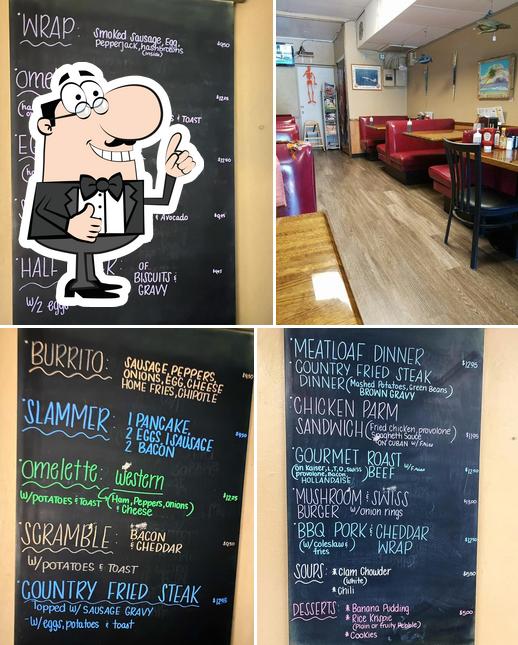 WRAP: smoked sausage, egg,
pepperjack, hashbrowns
(inside)
& TOAST
& Avocado
HALF
OF
BISCUITS &
GRAVY
w/2 eggs
BURRITO: SAUSAGE, PEPPERS,
ONIONS, EGG, CHEESE
HOME FRIES, CHIPOTLE
SLAMMER: 1 PANCAKE,
2 EGGS 1 SAUSAGE
2 BACON
Omelette: Western
W/POTATOES & TOAST (Ham, Peppers, onions)
& Cheese
$12.25
SCRAMBLE: BACON
& CHEDDAR
W/POTATOES & TOAST
COUNTRY FRIED STEAK
Topped w/ SAUSAGE GRAVY
-W/eggs, potatoes & toast
$12.95
MEATLOAF DINNER
$12.95
COUNTRY FRIED STEAK
DINNER (Mashed Potatoes, Green Beans)
BROWN GRAVY
CHICKEN PARM
SANDWICH (Fried chicken, provolone
Spaghetti Sauce)
ON CUBAN w/ Fries
$11.95
GOURMET ROAST
(on Kaiser, L,T,O, swiss BEEF w/ Fries
provolone, Bacon,
HOLLANDAISE)
MUSHROOM & SWISS
BURGER w/onion rings
BBQ PORK & CHEDDAR
(w/coleslaw & WRAP
fries
SOUPS: * Clam Chowder
(White)
* Chili
DESSERTS: * Banana Pudding
* Rice Krispie
(Plain or fruity Pebble)
* Cookies
$5.00